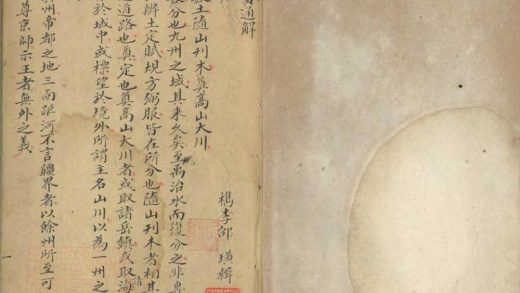 貢通解
檇李邵 璜輯
敷土隨山刊木奠高山大川
敷分也九州之域其來久矣至禹治水而復分之非專
辨土定賦規方弼服皆在所分也隨山刊木者相其
道路也奠定也奠高山大川者或取諸岳鎮或取海
於域中或標望於境外所謂主名山川以為一州之
州帝都之地三面距河不言疆界者以餘州所至可
尊京師示王者無外之義
一